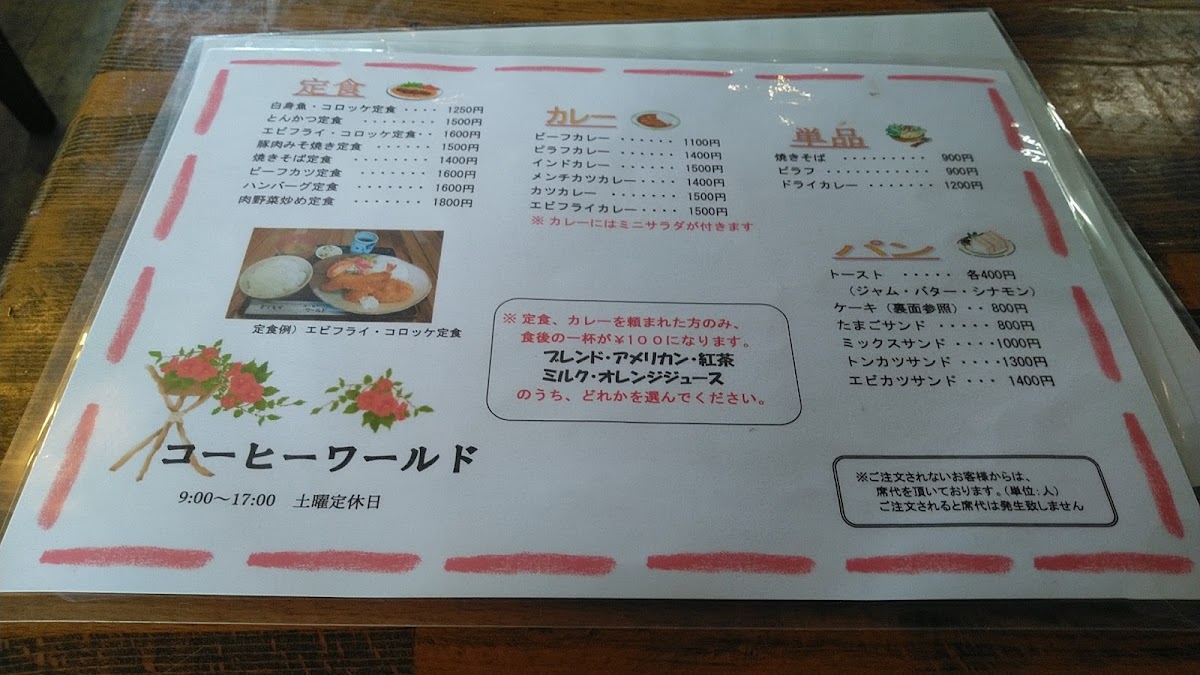 定食
白身魚・コロッケ定食 ・・・・ 1250円
とんかつ定食 ・・・・・・・・ 1500円
エビフライ・コロッケ定食・・ 1600円
豚肉みそ焼き定食 ・・・・・・ 1500円
焼きそば定食 ・・・・・・・・ 1400円
ビーフカツ定食 ・・・・・・・ 1600円
ハンバーグ定食 ・・・・・・・ 1600円
肉野菜炒め定食 ・・・・・・・ 1800円
定食例）エビフライ・コロッケ定食
カレー
ビーフカレー ・・・・・・ 1100円
ピラフカレー ・・・・・・ 1400円
インドカレー ・・・・・・ 1500円
メンチカツカレー・・・・・ 1400円
カツカレー ・・・・・・・ 1500円
エビフライカレー・・・・ 1500円
※ カレーにはミニサラダが付きます
※ 定食、カレーを頼まれた方のみ、
食後の一杯が￥１００になります。
ブレンド・アメリカン・紅茶
ミルク・オレンジジュース
のうち、どれかを選んでください。
単品
焼きそば ・・・・・・・・・ 900円
ピラフ ・・・・・・・・・・・ 900円
ドライカレー ・・・・・・・ 1200円
パン
トースト ・・・・・ 各400円
（ジャム・バター・シナモン）
ケーキ（裏面参照）・・ 800円
たまごサンド ・・・・・ 800円
ミックスサンド ・・・・1000円
トンカツサンド ・・・・1300円
エビカツサンド ・・・ 1400円
コーヒーワールド
9:00～17:00 土曜定休日
※ご注文されないお客様からは、
席代を頂いております。（単位：人）
ご注文されると席代は発生致しません